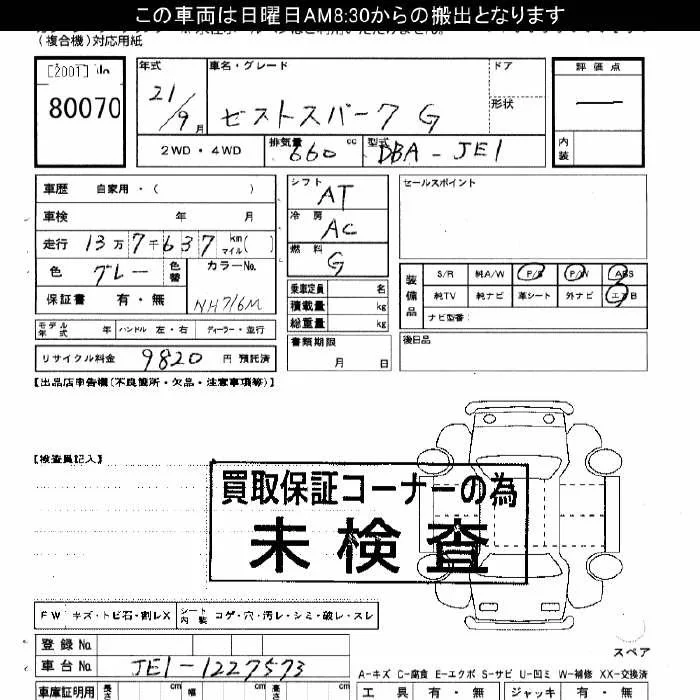 この車両は日曜日AM8:30からの搬出となります
(複合機)対応用紙
[2001] No
80070
年式
21/9月
車名・グレード
ゼストスパーク G
ドア
形状
評価点
内装
2WD・4WD
排気量
660 cc
型式
DBA-JE1
車歴 自家用・( )
車検 年 月
走行 13万7千637 km マイル( )
色 グレー 色替
カラーNo.
NH716M
保証書 有・無
シフト
AT
冷房
AC
燃料
G
乗車定員 名
積載量 kg
総重量 kg
書類期限
月 日
セールスポイント
装備品
S/R 純A/W P/S P/W ABS
純TV 純ナビ 革シート 外ナビ エアB
ナビ型番:
後日品
モデル年式 年 ハンドル 左・右 ディーラー・並行
リサイクル料金 9820 円 預託済
【出品店申告欄(不良箇所・欠品・注意事項等)】
【検査員記入】
買取保証コーナーの為
未検査
FW キズ・トビ石・割レX シート内装 コゲ・穴・汚レ・シミ・破レ・スレ
スペア
登録No.
車台No. JE1-1227573
A-キズ C-腐食 E-エクボ S-サビ U-凹ミ W-補修 XX-交換済
車庫証明用 長さ cm 幅 cm 高さ cm
工具 有・無 ジャッキ 有・無